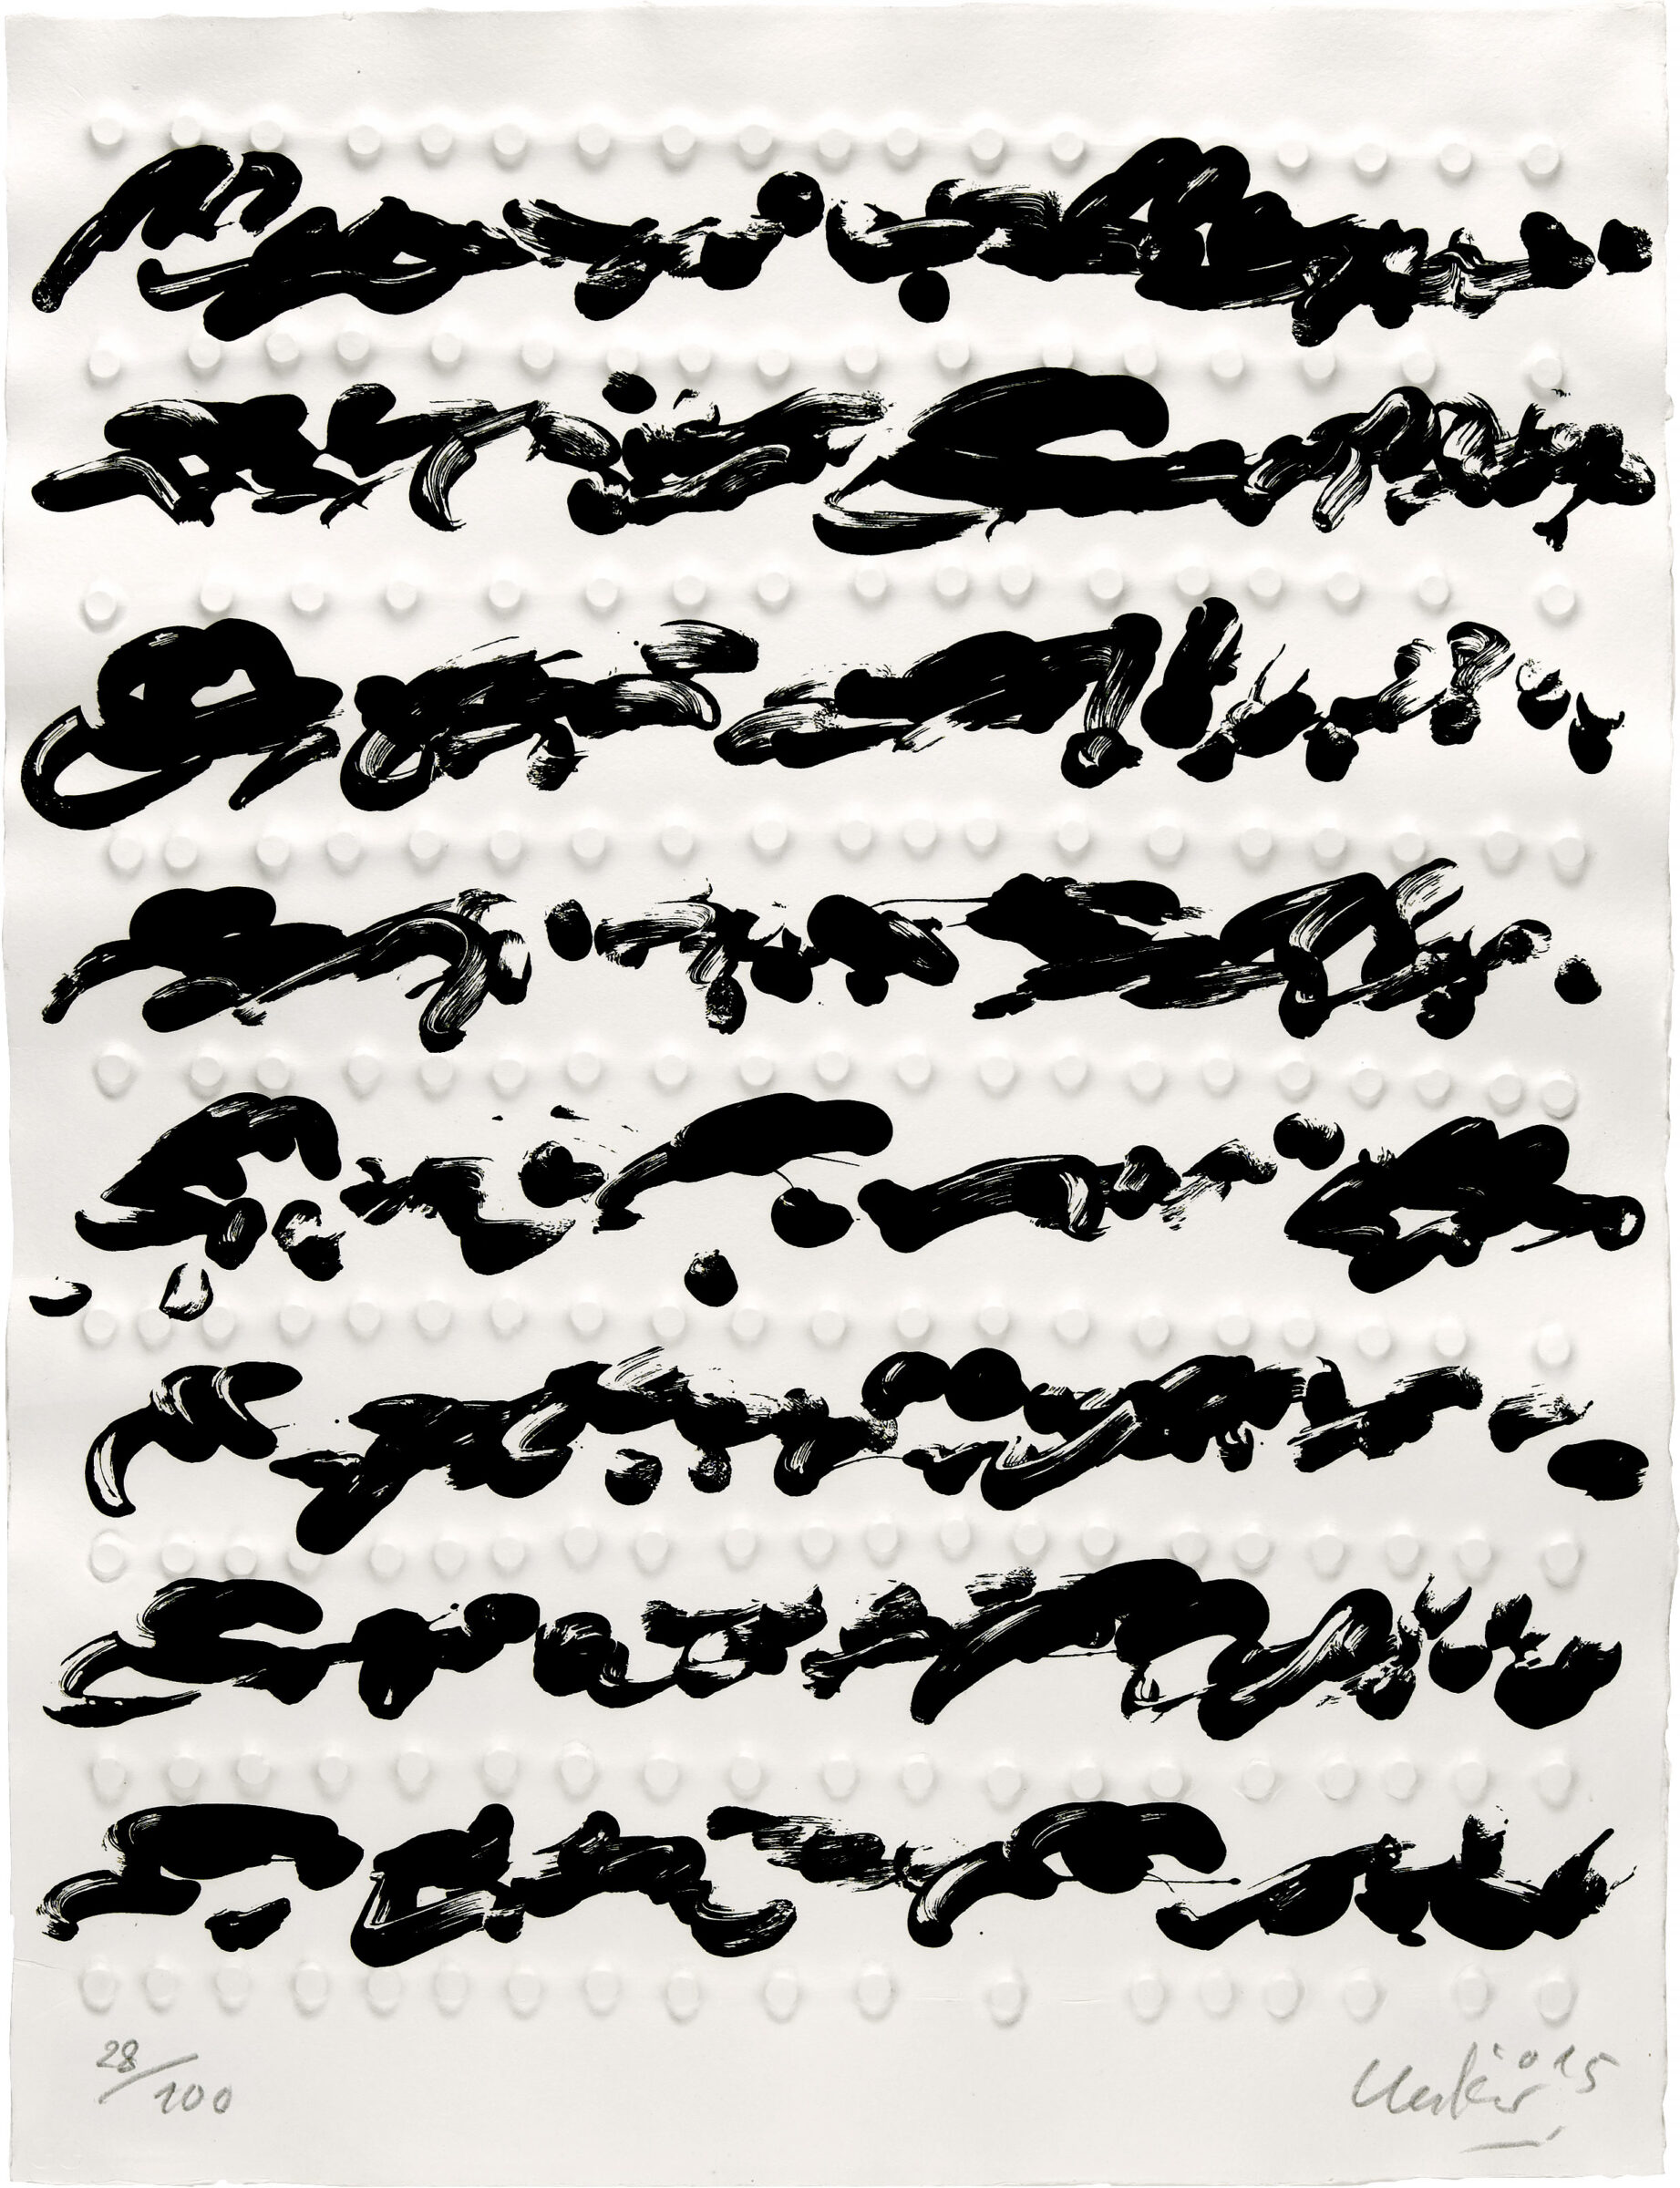 28/100
Uecker '015